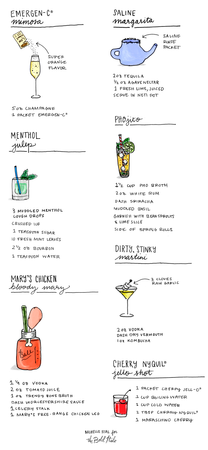 EMERGEN-C®
mimosa
SUPER
ORANGE
FLAVOR
5 oz CHAMPAGNE
1 PACKET EMERGEN-C®
MENTHOL
julep
3 MUDDLED MENTHOL
COUGH DROPS
CRUSHED ICE
1 TEASPOON SUGAR
10 FRESH MINT LEAVES
2 ½ oz BOURBON
1 TEASPOON WATER
MARY'S CHICKEN
bloody mary
1 ½ oz VODKA
3 oz TOMATO JUICE
3 oz TRENDY BONE BROTH
DASH WORCESTERSHIRE SAUCE
1 CELERY STALK
1 MARY'S FREE-RANGE CHICKEN LEG
SALINE
margarita
SALINE
RINSE
PACKET
2 oz TEQUILA
½ oz AGAVE NECTAR
1 FRESH LIME, JUICED
SERVE IN NETI POT
PHOJITO
1 ½ CUP PHO BROTH
2 oz WHITE RUM
DASH SRIRACHA
MUDDLED BASIL
GARNISH WITH BEAN SPROUTS
& LIME SLICE
SIDE OF SPRING ROLLS
DIRTY, STINKY
martini
2 CLOVES
RAW GARLIC
3 oz VODKA
DASH DRY VERMOUTH
CORNICHON
CHERRY NYQUIL®
jello shot
1 PACKET CHERRY JELL-O®
1 CUP BOILING WATER
1 CUP COLD WATER
1 TBSP CHERRY NYQUIL®
1 MARASCHINO CHERRY
for
The Bold Italic